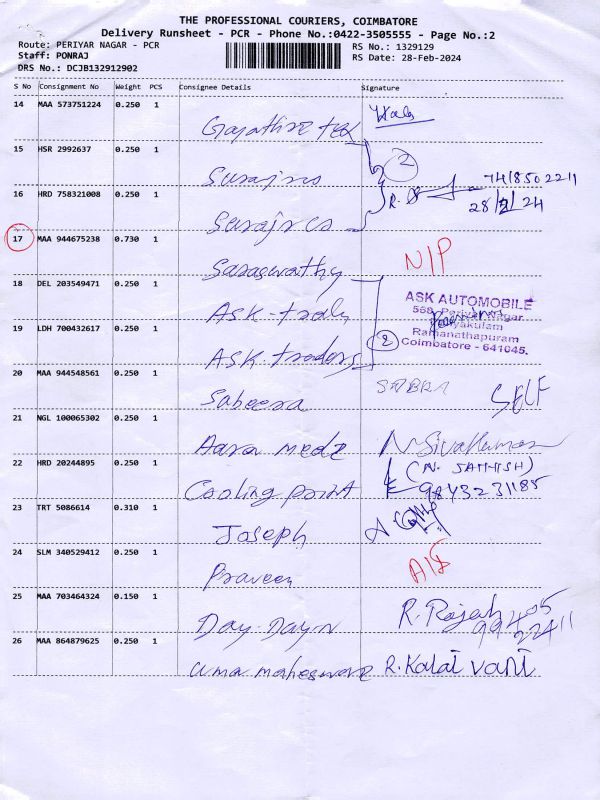 THE PROFESSIONAL COURIERS, COIMBATORE
Delivery Runsheet - PCR - Phone No.:0422-3505555 - Page No.:2
Route: PERIYAR NAGAR - PCR RS No.: 1329129
Staff: PONRAJ RS Date: 28-Feb-2024
DRS No.: DCJB132912902
S No Consignment No Weight PCS Consignee Details Signature
14 MAA 573751224 0.250 1
Gayathire tex
15 HSR 2992637 0.250 1 2
Surajres 7418502211
16 HRD 758321008 0.250 1 R. 28/2/24
Surajres
17 MAA 944675238 0.730 1 N/P
Saraswathy
18 DEL 203549471 0.250 1 ASK AUTOMOBILE
568, Periyar Nagar
ASK-trade Periyakulam
19 LDH 700432617 0.250 1 Ramanathapuram
2 Coimbatore - 641045.
ASK-traders
20 MAA 944548561 0.250 1 SABERA SELF
Sabeera
21 NGL 100065302 0.250 1
Aara mede N Sivakumar
22 HRD 20244895 0.250 1 (N. SATHISH)
Cooling point 9843231185
23 TRT 5086614 0.310 1
Joseph
24 SLM 340529412 0.250 1
Praveen
25 MAA 703464324 0.150 1 R. Rajesh
Day-Dayn 99405
22411
26 MAA 864879625 0.250 1
uma maheswari R. Kalai vani